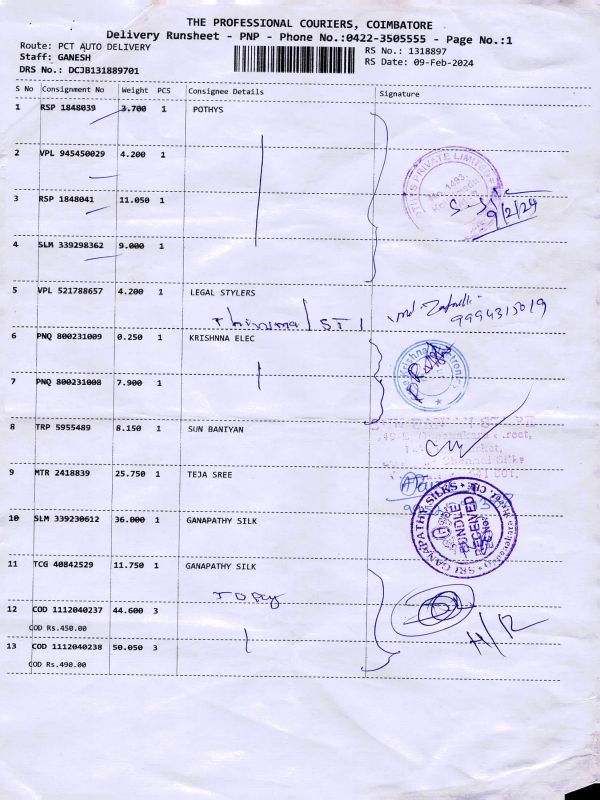 THE PROFESSIONAL COURIERS, COIMBATORE
Delivery Runsheet - PNP - Phone No.:0422-3505555 - Page No.:1
Route: PCT AUTO DELIVERY RS No.: 1318897
Staff: GANESH RS Date: 09-Feb-2024
DRS No.: DCJB131889701
S No Consignment No Weight PCS Consignee Details Signature
1 RSP 1848039 3.700 1 POTHYS
2 VPL 945450029 4.200 1
PRIVATE LIMITED
9/2/24
3 RSP 1848041 11.050 1
4 SLM 339298362 9.000 1
5 VPL 521788657 4.200 1 LEGAL STYLERS
9994315019
6 PNQ 800231009 0.250 1 KRISHNNA ELEC
7 PNQ 800231008 7.900 1
8 TRP 5955489 8.150 1 SUN BANIYAN
9 MTR 2418839 25.750 1 TEJA SREE
10 SLM 339230612 36.000 1 GANAPATHY SILK
SRI GANAPATHY SILKS
BUNDLE
RECEIVED
11 TCG 40842529 11.750 1 GANAPATHY SILK
12 COD 1112040237 44.600 3
COD Rs.450.00
13 COD 1112040238 50.050 3
COD Rs.490.00